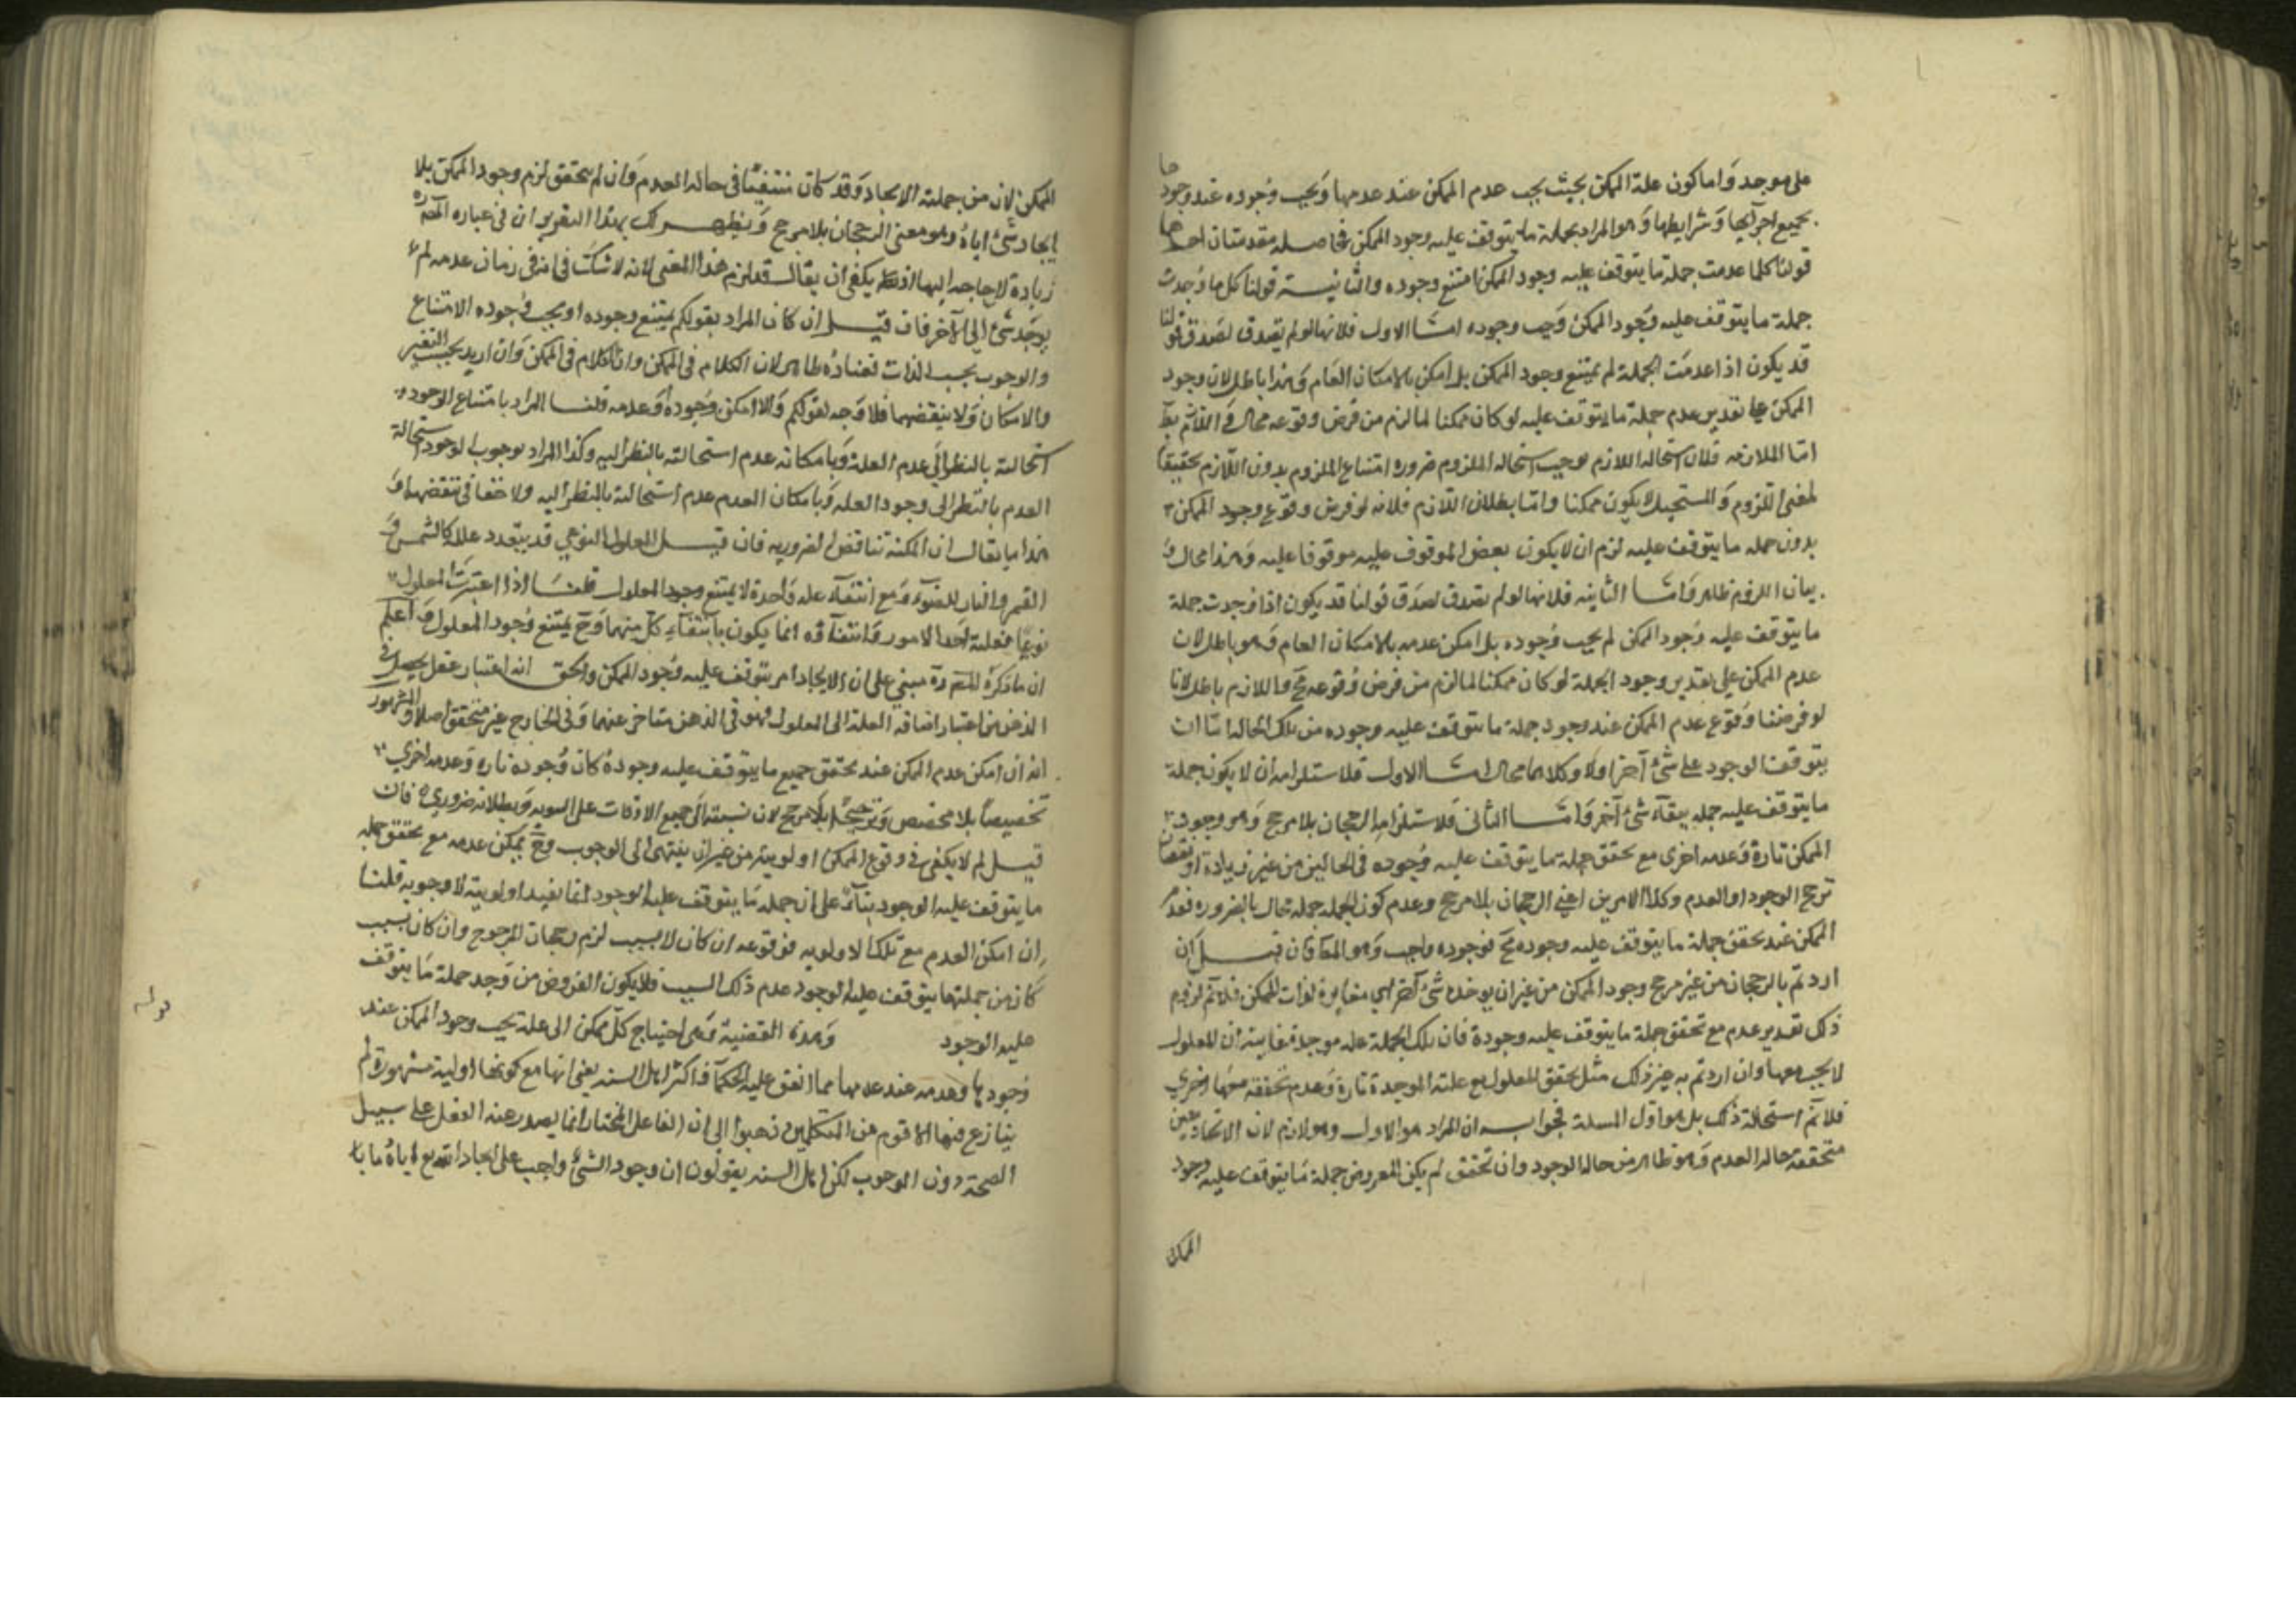 على موجد واما كون علة الممكن بحيث يجب عدم الممكن عند عدمها ويجب وجوده عند وجودها
بجميع اجزآيها وشرايطها وهو المراد بجملة ما يتوقف عليه وجود الممكن فحاصله مقدمتان احداهما
قولنا كلما عدمت جملة ما يتوقف عليه وجود الممكن امتنع وجوده والثانية قولنا كل ما وجدت
جملة ما يتوقف عليه وجود الممكن وجب وجوده امّا الاول فلانها لو لم يصدق لصدق قولنا
قد يكون اذا عدمت الجملة لم يمتنع وجود الممكن بل امكن بالامكان العام وهذا باطل لان وجود
الممكن على تقدير عدم جملة ما يتوقف عليه لو كان ممكنا لما لزم من فرض وقوعه محال واللازم بط
امّا الملازمه فلان استحاله اللازم توجب استحاله الملزوم ضروره امتناع الملزوم بدون اللازم تحقيقا
لمعنى اللزوم والمستحيل لا يكون ممكنا وامّا بطلان اللازم فلانه لو فرض وقوع وجود الممكن
بدون جمله ما يتوقف عليه لزم ان لا يكون بعض الموقوف عليه موقوفا عليه وهذا محال و
بيان اللزوم ظاهر وامّا الثانيه فلانها لو لم تصدق لصدق قولنا قد يكون اذا وجدت جملة
ما يتوقف عليه وجود الممكن لم يجب وجوده بل امكن عدمه بالامكان العام وهو باطل لان
عدم الممكن على تقدير وجود الجملة لو كان ممكنا لما لزم من فرض وقوعه مح واللازم باطل لانا
لو فرضنا وقوع عدم الممكن عند وجود جملة ما يتوقف عليه وجوده من تلك الحاله امّا ان
يتوقف الوجود على شئ آخر او لا وكلاهما محال امّا الاول فلاستلزامه ان لا يكون جملة
ما يتوقف عليه جمله يبقآء شئ آخر وامّا الثانى فلاستلزامه الرجحان بلا مرجح وهو وجود
الممكن تارة وعدمه اخرى مع تحقق جملة ما يتوقف عليه وجوده فى الحالين من غير زيادة او نقصان
ترجح الوجود او العدم وكلا الامرين اعنى الرجحان بلا مرجح وعدم كون الجمله جمله محال بالضروره فعدم
الممكن عند تحقق جملة ما يتوقف عليه وجوده مح فوجوده واجب وهو المط فان قيل ان
اردتم بالرجحان من غير مرجح وجود الممكن من غير ان يوجده شئ آخر اى مغايرة لذات الممكن فلا نم لزوم
ذلك تقدير عدم مع تحقق جملة ما يتوقف عليه وجودة فان تلك الجملة علة موجدة فغايته ان المعلول
لا يجب معها وان اردتم به غير ذلك مثل تحقق المعلول مع علته الموجدة تارة وعدم تحققه معها اخرى
فلا نم استحالة ذلك بل هو اول المسلة فجوابه ان المراد هو الاول وهو لازم لان الايجاد بعين
متحققة حاله العدم وهو ظاهر من حاله الوجود وان تحقق لم يكن المعروض جملة ما يتوقف عليه وجود
الممكن
الممكن لان من جملته الايجاد وقد كان منتفيًا فى حاله العدم وان لم يتحقق لزم وجود الممكن بلا
ايجاد شئ اياه وهو معنى الرجحان بلا مرجح ويظهر لك بهذا التقرير ان فى عباره المصره
زيادة لا حاجه اليها اذ يكفى ان يقال قد لزم هذا المعنى لانه لا شك فى انه فى زمان عدمه لم
يوجد شئ الى آخر فان قيل ان كان المراد بقولكم يمتنع وجوده او يجب وجوده الامتناع
والوجوب بحسب الذات ففساده ظاهر لان الكلام فى الممكن وان الكلام فى الممكن وان اريد بحسب الغير
والامكان ولا ينقضهما فلا وجه لقولكم والا امكن وجوده وعدمه قلنا المراد بامتناع الوجود
استحالته بالنظر الى عدم العلة وبامكانه عدم استحالته بالنظر اليه وكذا المراد بوجوب الوجود استحالة
العدم بالنظر الى وجود العله وبامكان العدم عدم استحالته بالنظر اليه ولا خفا فى تنقضهما و
هذا ما يقال ان الممكنة تناقض الضروريه فان قيل المعلول النوعي قد يتعدد علله كالشمس و
القمر والنار للضوء ومع انتفآء عله واحدة لا يمتنع وجود المعلول قلنا اذا اعتبرت المعلول
نوعيًا فعلته احد الامور وانتفآؤه انما يكون بانتفآء كل منهما وح يمتنع وجود المعلول واعلم
ان ما ذكره المصره مبني على ان الايجاد امر يتوقف عليه وجود الممكن والحق انه اعتبار عقلى يحصل فى
الذهن من اعتبار اضافه العلة الى المعلول فهو فى الذهن متاخر عنهما وفى الخارج غير متحقق اصلا والمشهور
انه ان امكن عدم الممكن عند تحقق جميع ما يتوقف عليه وجودة كان وجوده تاره وعدمه اخرى
تخصيصًا بلا مخصص وترجيحًا بلا مرجح لان نسبته الى جميع الاوقات على السويه وبطلانه ضروري فان
قيل لم لا يكفى فى وقوع الممكن اولويته من غير ان ينتهى الى الوجوب وح يمكن عدمه مع تحقق جملة
ما يتوقف عليه الوجود بنآءً على ان جمله ما يتوقف عليه الوجود انما يفيد اولويته لا وجوبه قلنا
ان امكن العدم مع تلك الاولويه فوقوعه ان كان لا بسبب لزم رجحان المرجوح وان كان بسبب
كان من جملة ما يتوقف عليه الوجود عدم ذلك السبب فلا يكون المفروض من وجد جملة ما يتوقف
عليه الوجود وهذه القضية وهى احتياج كل ممكن الى علة يجب وجود الممكن عند
وجودها وعدمه عند عدمها مما اتفق عليه الحكمآء واكثر اهل السنه يعنى انها مع كونها اولية مشهورة لم
ينازع فيها الا قوم من المتكلمين ذهبوا الى ان الفاعل المختار انما يصدر عنه الفعل على سبيل
الصحة دون الوجوب لكن اهل السنه يقولون ان وجود الشئ واجب على ايجاد الله تع اياه
قوله